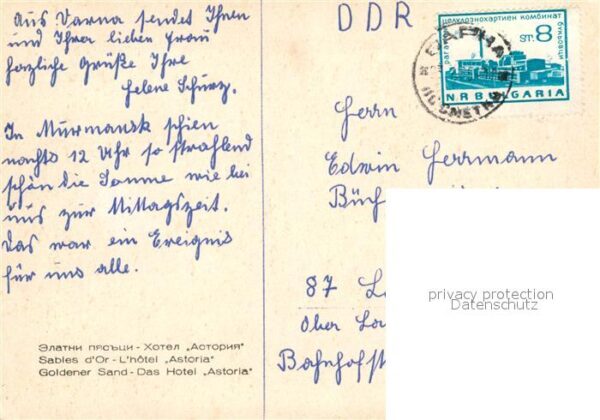 Aus Varna sendet Ihnen
und Ihrer lieben Frau
herzliche Grüße Ihre
Helene Schurz.
In Murmansk schien
nachts 12 Uhr so strahlend
schön die Sonne wie bei
uns zur Mittagszeit.
Das war ein Ereignis
für uns alle.
Златни пясъци - Хотел „Астория“
Sables d'Or - L'hôtel „Astoria“
Goldener Sand - Das Hotel „Astoria“
DDR
целулознохартиен комбинат
ST. 8
NRBULGARIA
Herrn
Edwin Herrmann
Büch
87 L
Ober
Bahnhofst
privacy protection
Datenschutz